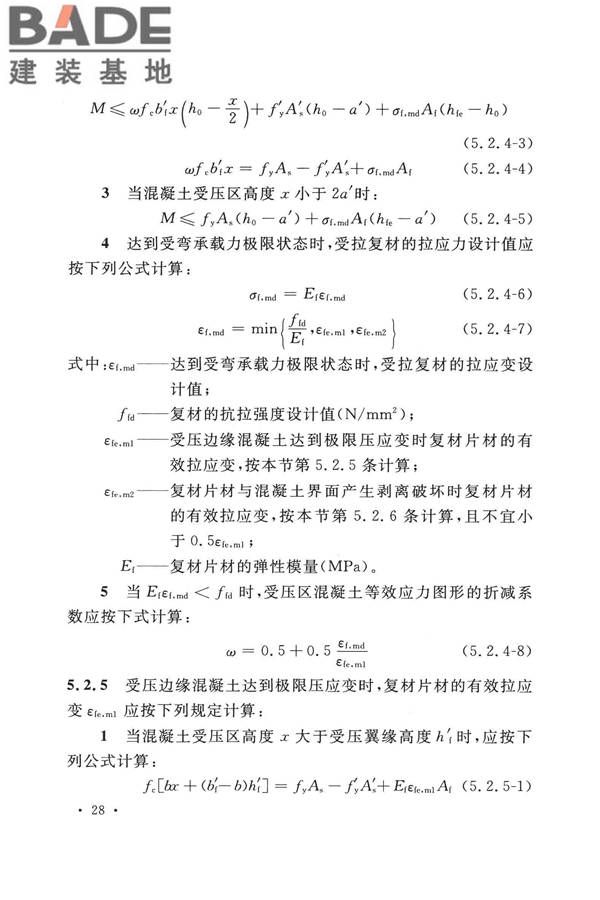 BADE
建装基地
M ≤ ωf_c b'_f x (h_0 − x/2) + f'_y A'_s (h_0 − a') + σ_{f,md} A_f (h_{fe} − h_0)
(5.2.4-3)
ωf_c b'_f x = f_y A_s − f'_y A'_s + σ_{f,md} A_f (5.2.4-4)
3 当混凝土受压区高度 x 小于 2a'时:
M ≤ f_y A_s (h_0 − a') + σ_{f,md} A_f (h_{fe} − a') (5.2.4-5)
4 达到受弯承载力极限状态时,受拉复材的拉应力设计值应
按下列公式计算:
σ_{f,md} = E_f ε_{f,md} (5.2.4-6)
ε_{f,md} = min{f_{fd}/E_f, ε_{fe,m1}, ε_{fe,m2}} (5.2.4-7)
式中:ε_{f,md}——达到受弯承载力极限状态时,受拉复材的拉应变设
计值;
f_{fd}——复材的抗拉强度设计值(N/mm²);
ε_{fe,m1}——受压边缘混凝土达到极限压应变时复材片材的有
效拉应变,按本节第 5.2.5 条计算;
ε_{fe,m2}——复材片材与混凝土界面产生剥离破坏时复材片材
的有效拉应变,按本节第 5.2.6 条计算,且不宜小
于 0.5ε_{fe,m1};
E_f——复材片材的弹性模量(MPa)。
5 当 E_f ε_{f,md} < f_{fd} 时,受压区混凝土等效应力图形的折减系
数应按下式计算:
ω = 0.5 + 0.5 ε_{f,md}/ε_{fe,m1} (5.2.4-8)
5.2.5 受压边缘混凝土达到极限压应变时,复材片材的有效拉应
变 ε_{fe,m1} 应按下列规定计算:
1 当混凝土受压区高度 x 大于受压翼缘高度 h'_f 时,应按下
列公式计算:
f_c[bx + (b'_f − b)h'_f] = f_y A_s − f'_y A'_s + E_f ε_{fe,m1} A_f (5.2.5-1)
· 28 ·